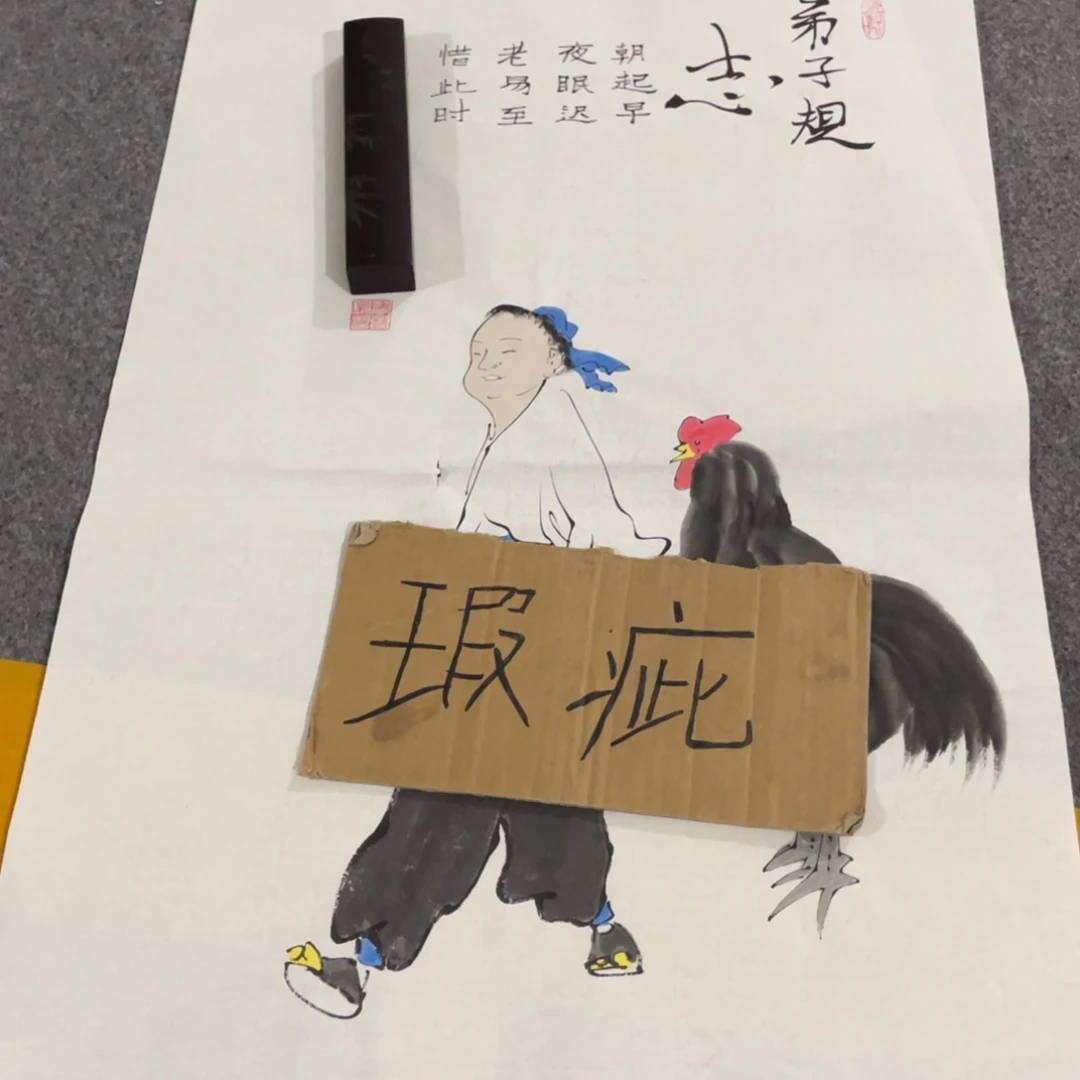 弟子规
志
朝起早
夜眠迟
老易至
惜此时
瑕疵